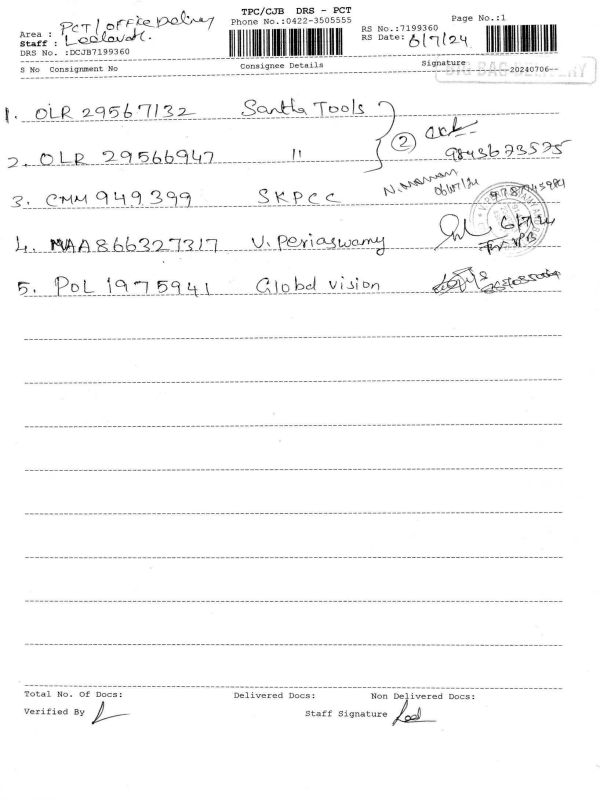 TPC/CJB DRS - PCT
Phone No.:0422-3505555
Page No.:1
Area : PCT/office Delivery
RS No.:7199360
Staff :
RS Date: 6/7/24
DRS No. :DCJB7199360
S No Consignment No Consignee Details Signature 20240706--
1. OLR 29567132 Santha Tools
2. OLR 29566947 " 2 9843673575
3. CMM 949399 SKPCC 06/07/24
4. MAA866327317 V. Periaswamy 6/7/24
5. POL 1975941 Global vision
Total No. Of Docs: Delivered Docs: Non Delivered Docs:
Verified By Staff Signature